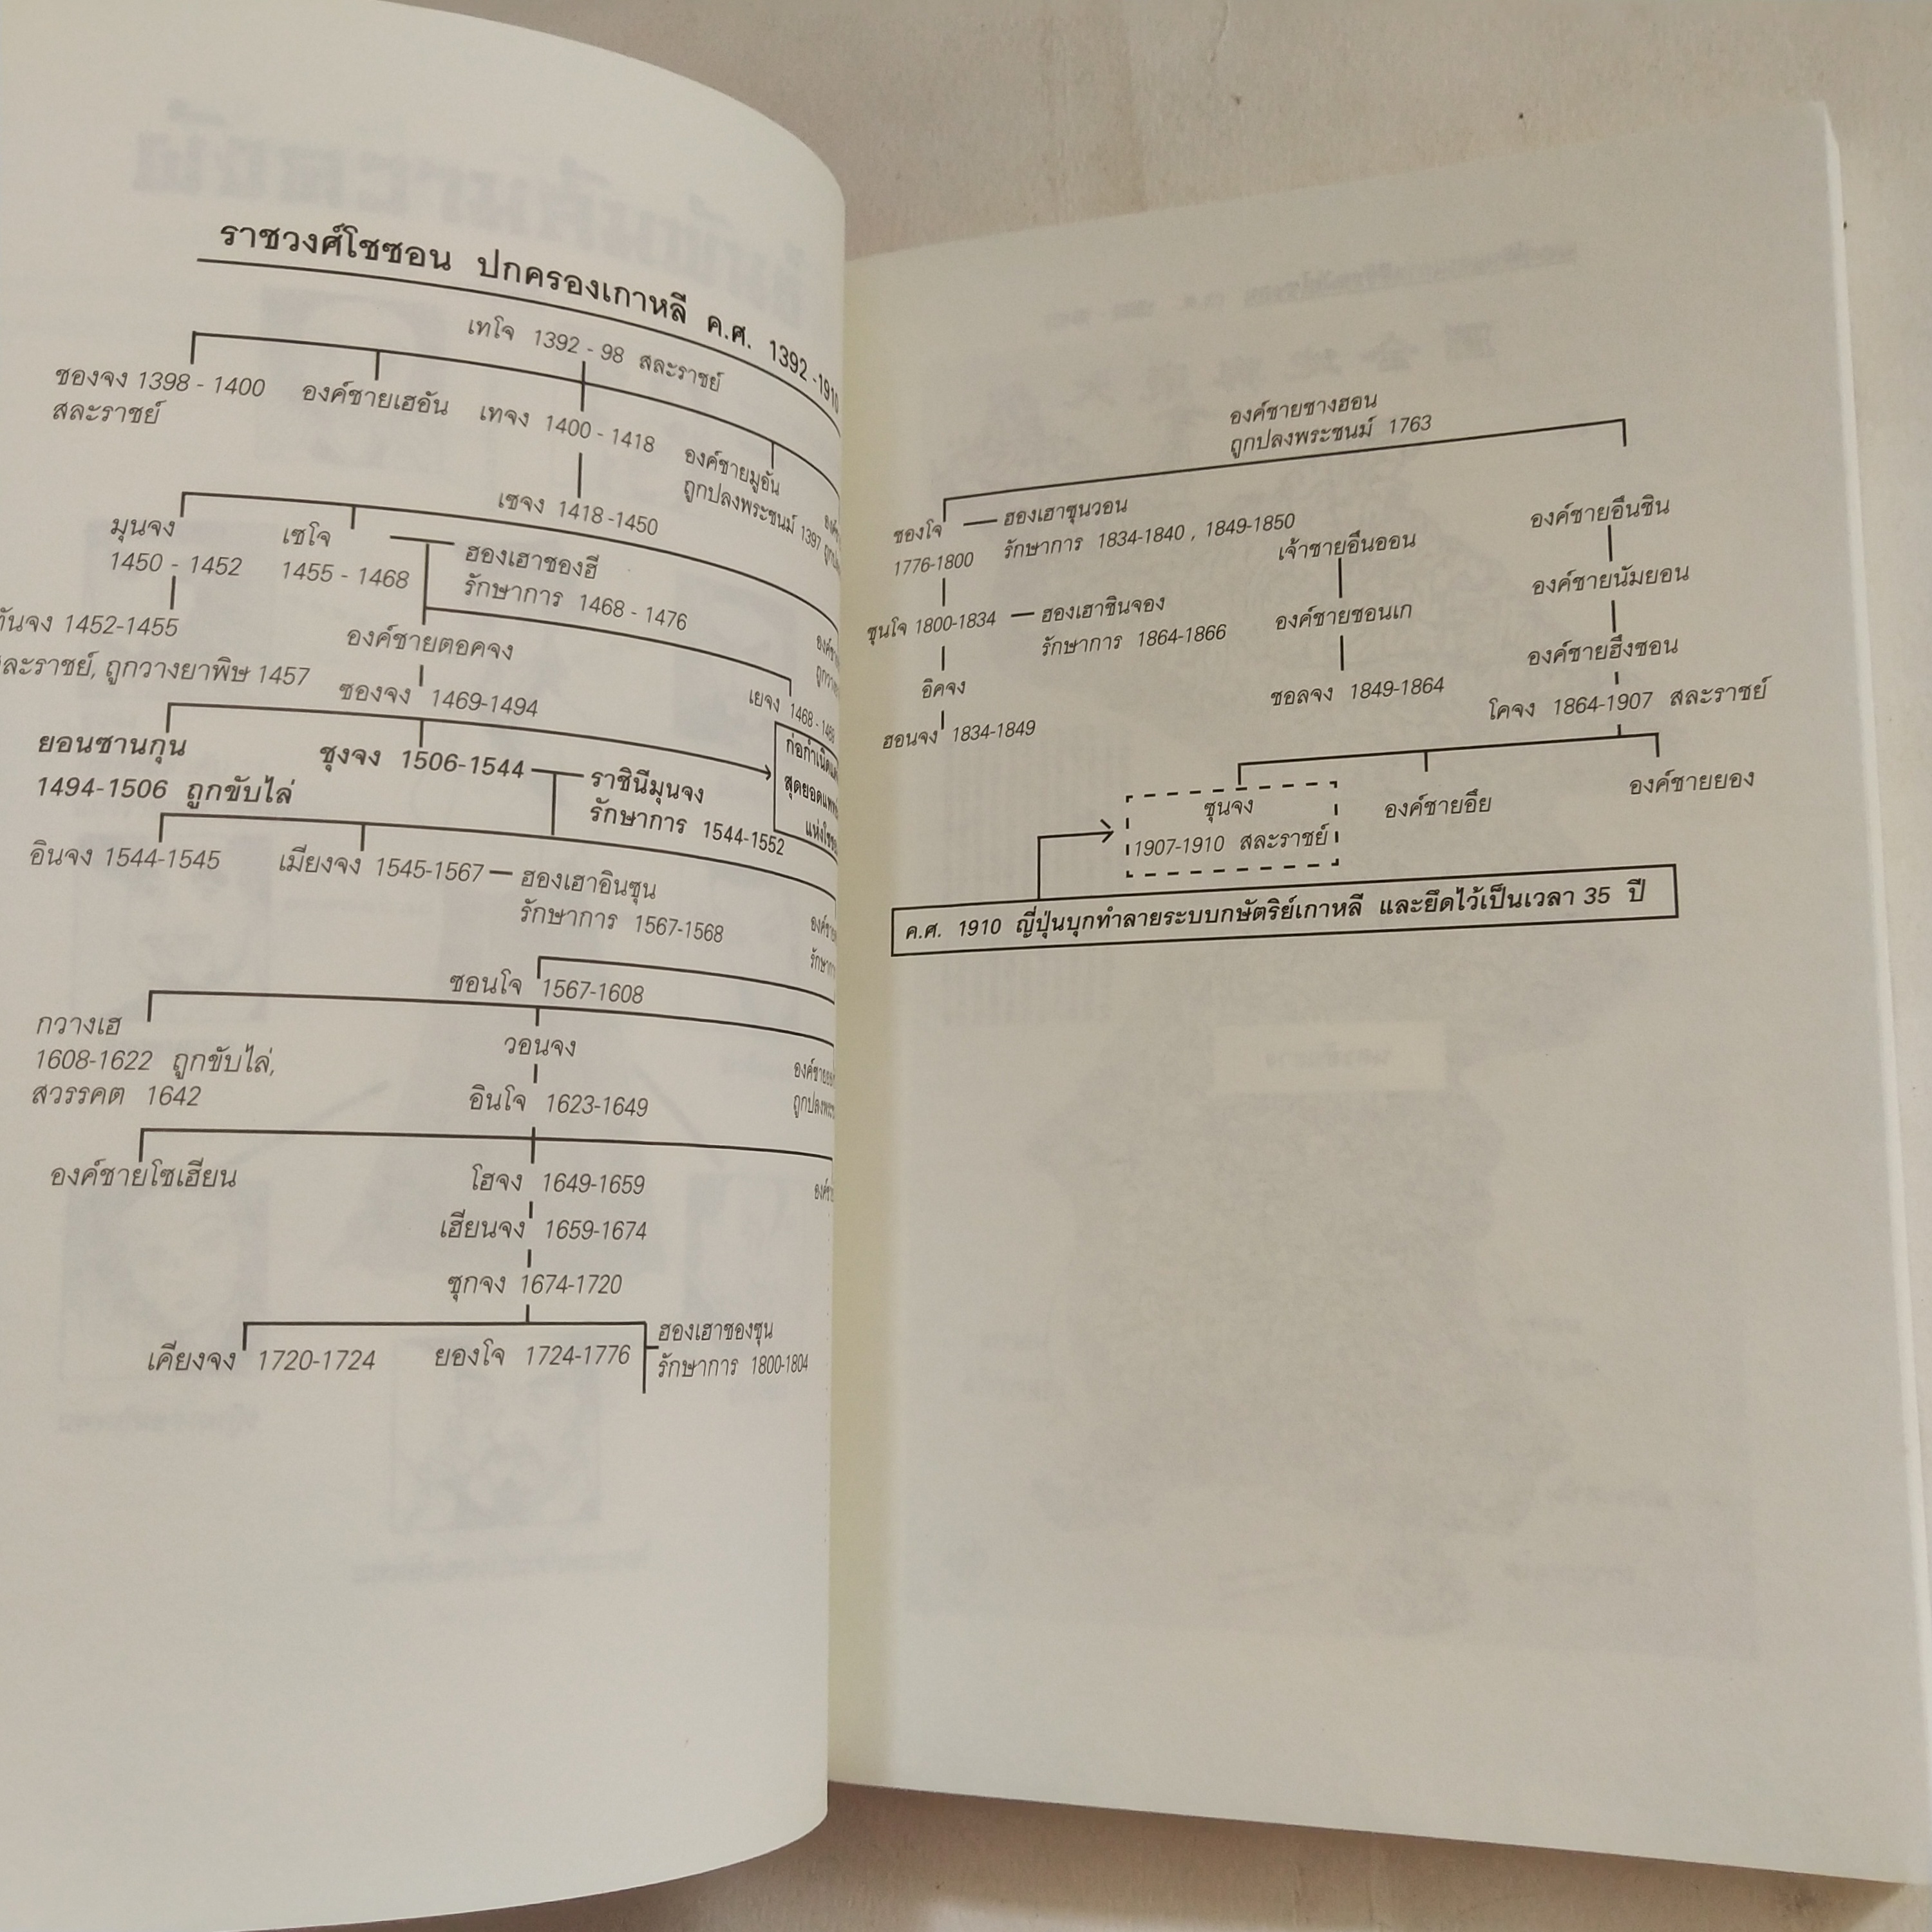 ราชวงศ์โชซอน ปกครองเกาหลี ค.ศ. 1392-1910
เทโจ 1392 - 98 สละราชย์
ชองจง 1398 - 1400
สละราชย์
องค์ชายเฮอัน
เทจง 1400 - 1418
องค์ชายมูอัน
ถูกปลงพระชนม์ 1397
เซจง 1418 -1450
มุนจง
1450 - 1452
เซโจ
1455 - 1468
ฮองเฮาชองฮี
รักษาการ 1468 - 1476
1452-1455
ถูกวางยาพิษ 1457
องค์ชายตอคจง
ซองจง 1469-1494
เยจง 1468 -
ยอนซานกุน
1494-1506 ถูกขับไล่
ชุงจง 1506-1544
ราชินีมุนจง
รักษาการ 1544-1552
ก่อกำเนิด
สุดยอด
อินจง 1544-1545
เมียงจง 1545-1567
ฮองเฮาอินซุน
รักษาการ 1567-1568
ซอนโจ 1567-1608
กวางเฮ
1608-1622 ถูกขับไล่,
สวรรคต 1642
วอนจง
อินโจ 1623-1649
องค์ชายโซเฮียน
โฮจง 1649-1659
เฮียนจง 1659-1674
ซุกจง 1674-1720
เคียงจง 1720-1724
ยองโจ 1724-1776
ฮองเฮาชองซุน
รักษาการ 1800-1804
องค์ชายชางฮอน
ถูกปลงพระชนม์ 1763
ชองโจ
1776-1800
ฮองเฮาซุนวอน
รักษาการ 1834-1840 , 1849-1850
เจ้าชายอึนออน
องค์ชายอึนซิน
ซุนโจ 1800-1834
ฮองเฮาชินจอง
รักษาการ 1864-1866
องค์ชายชอนเก
องค์ชายนัมยอน
อิคจง
ชอลจง 1849-1864
องค์ชายฮึงซอน
ฮอนจง 1834-1849
โคจง 1864-1907 สละราชย์
ซุนจง
1907-1910 สละราชย์
องค์ชายอึย
องค์ชายยอง
ค.ศ. 1910 ญี่ปุ่นบุกทำลายระบบกษัตริย์เกาหลี และยึดไว้เป็นเวลา 35 ปี